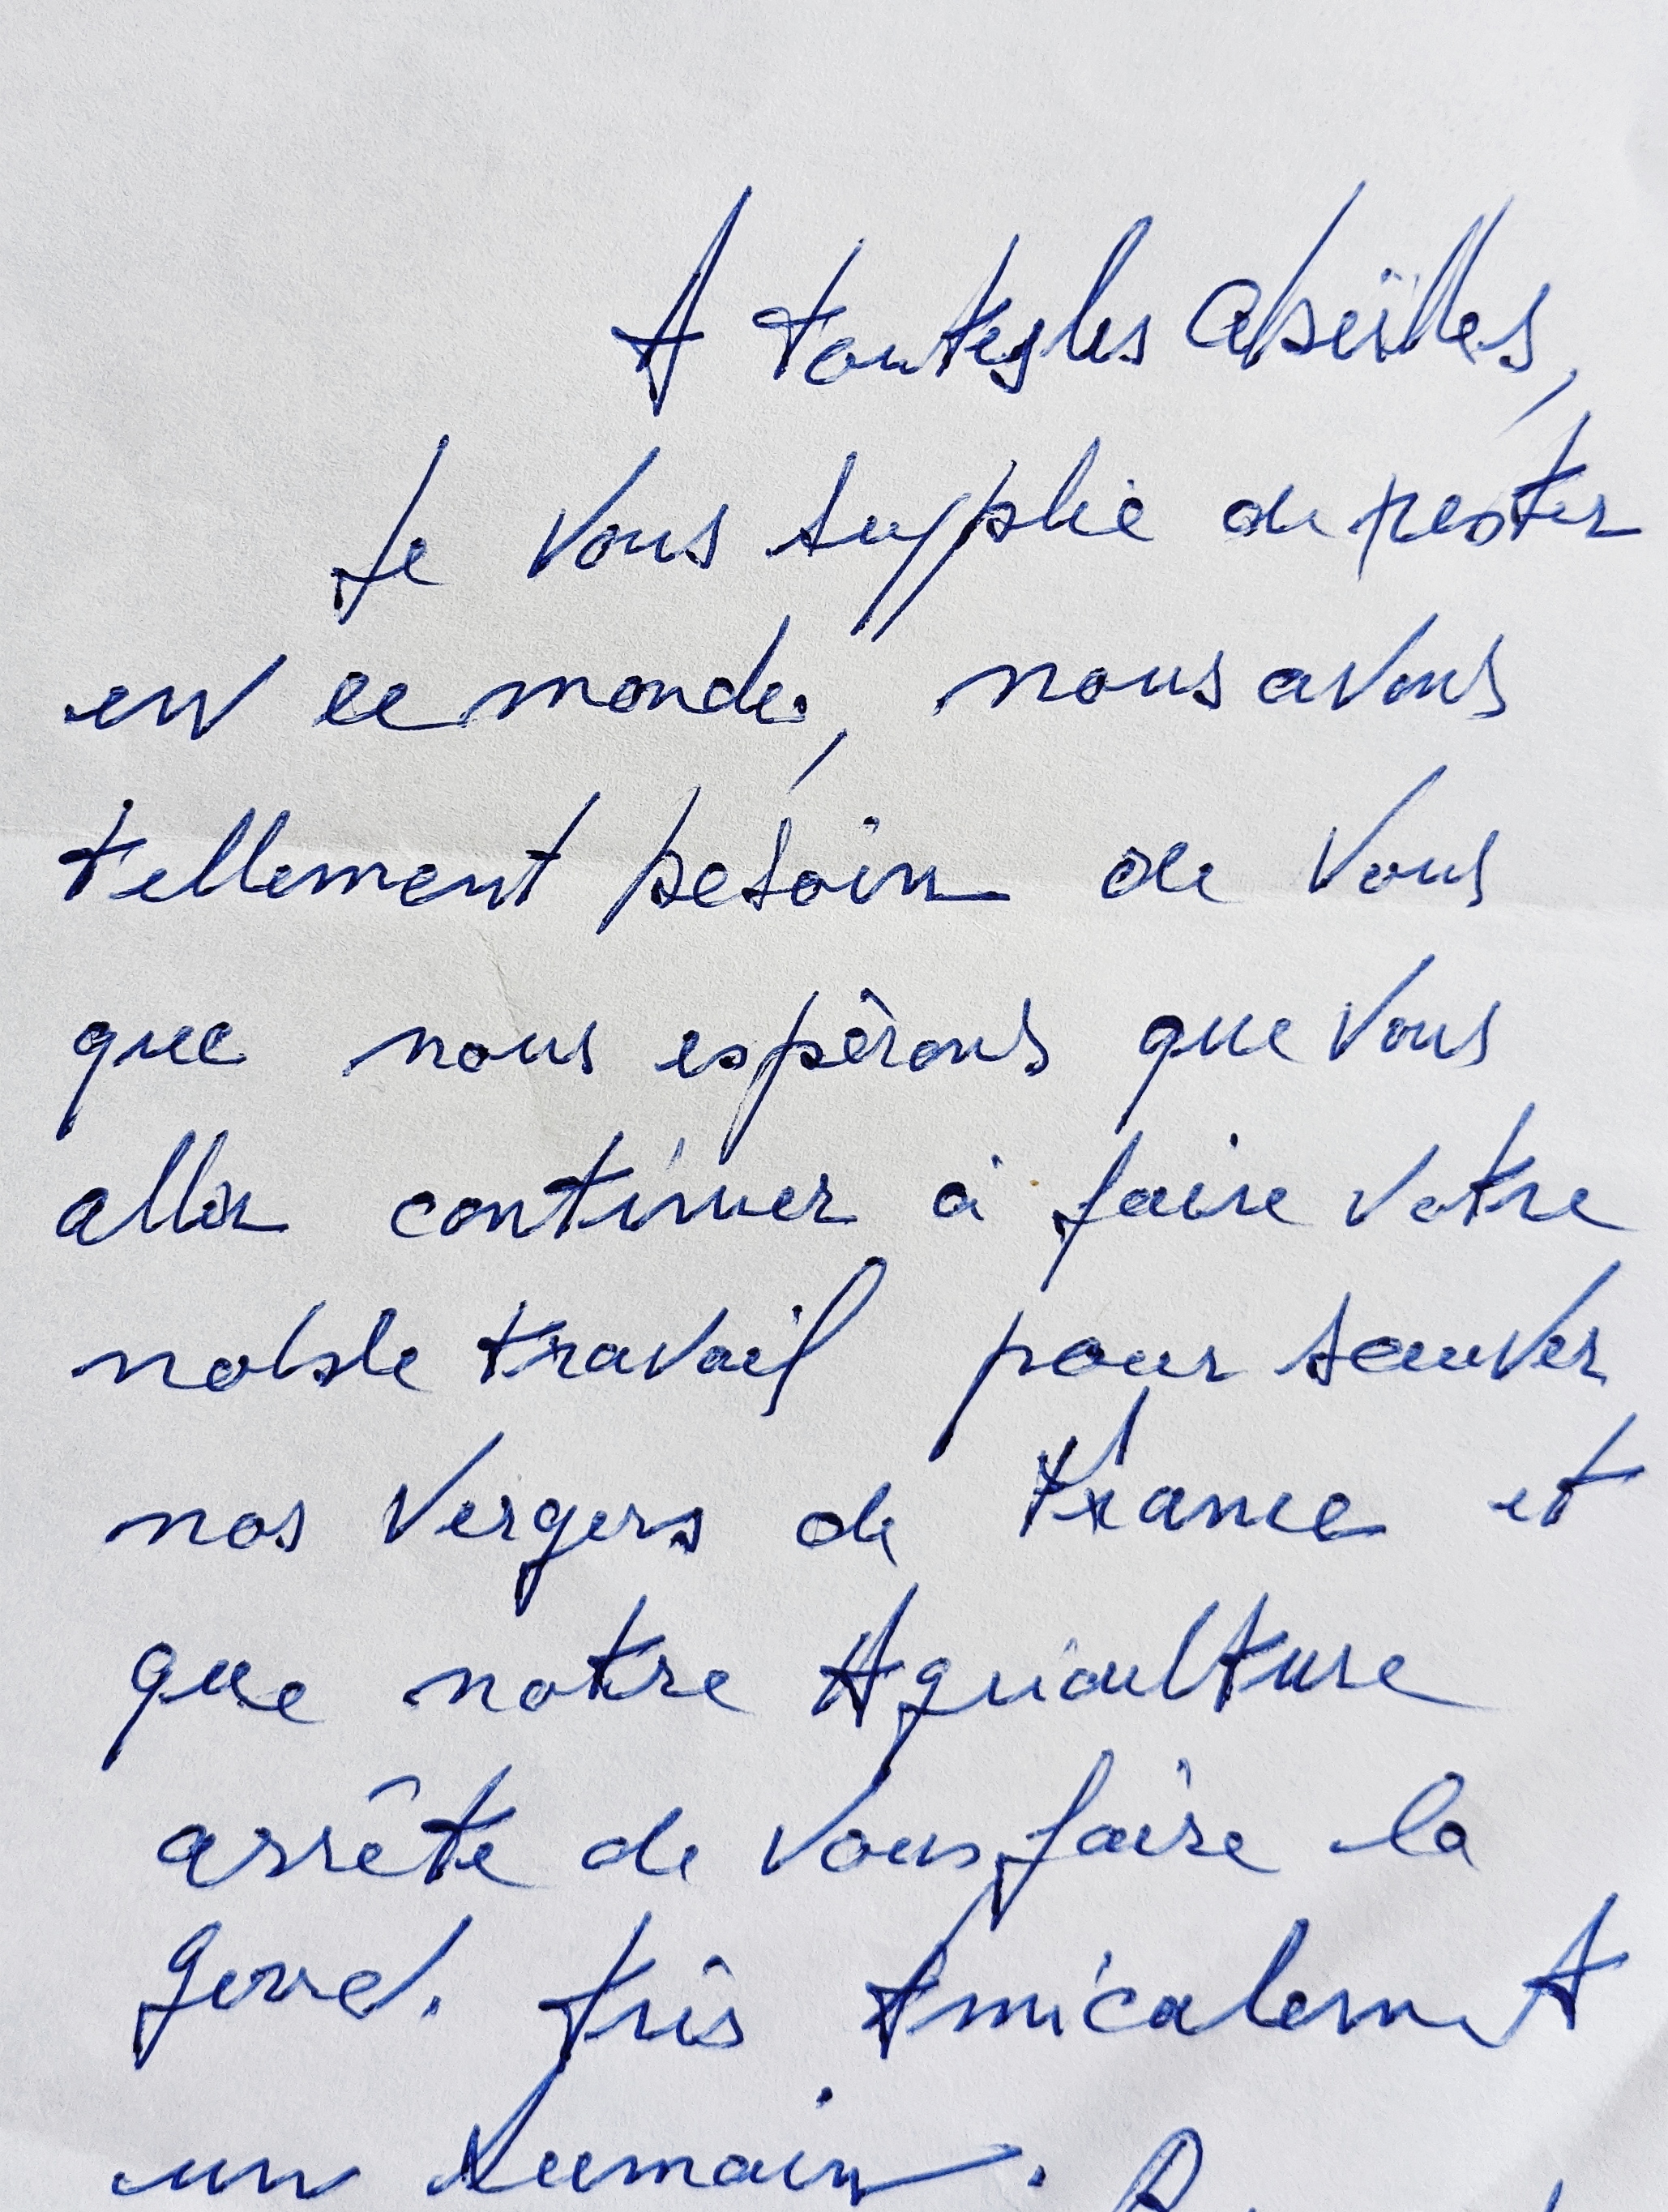 A toutes les Abeilles,
Je vous supplie de rester
en ce monde, nous avons
tellement besoin de vous
que nous espérons que vous
allez continuer à faire votre
noble travail pour sauver
nos vergers de France et
que notre Agriculture
arrête de vous faire la
guerre. Très Amicalement
un humain.